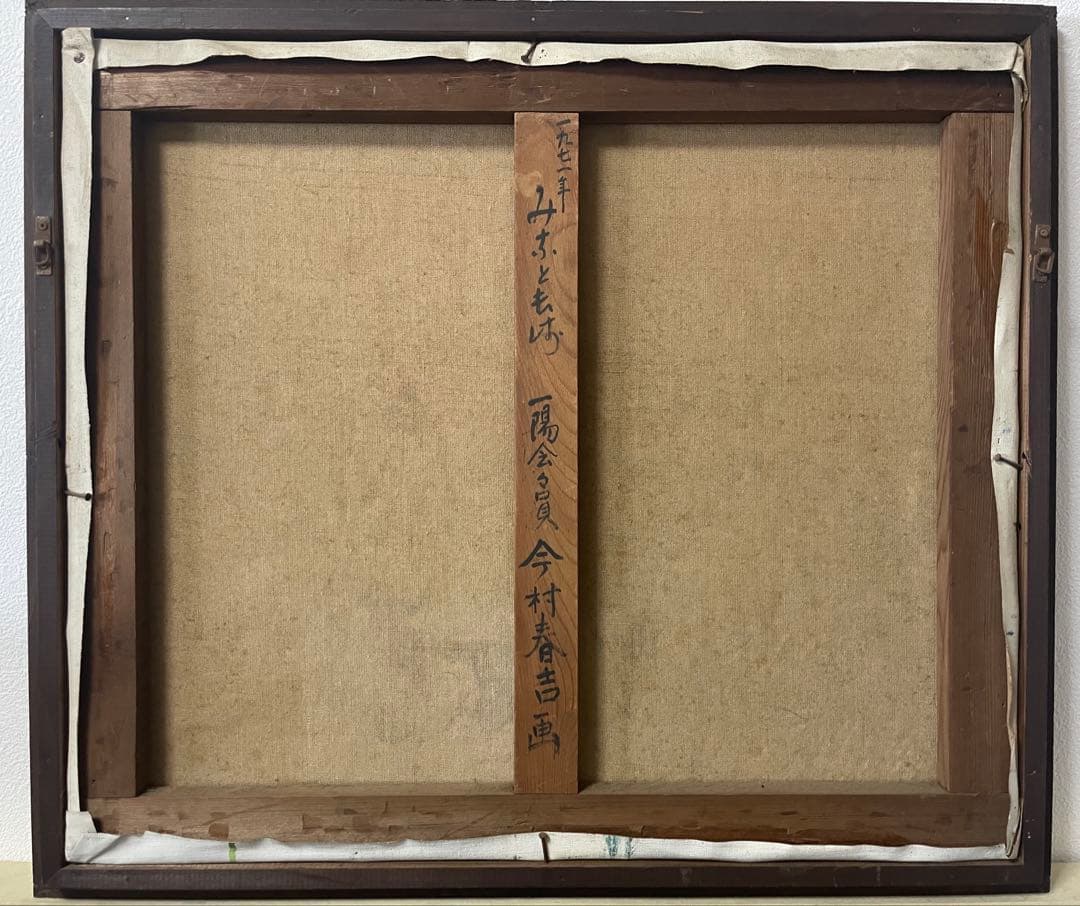 一九七一年
みなと長崎
一陽会会員 今村春吉画